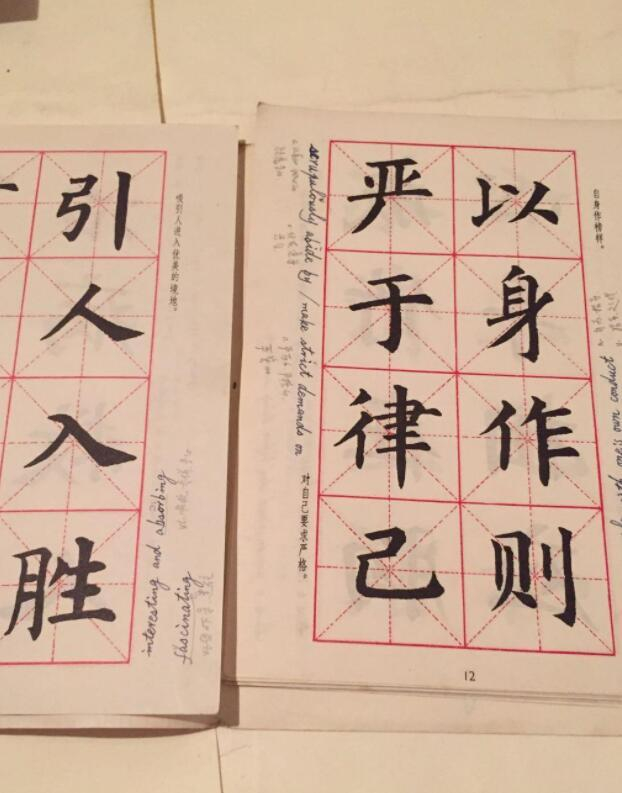 引
人
入
胜
吸引人进入优美的境地。
interesting and absorbing
fascinating
以
身
作
则
自身作榜样。
one's own conduct
严
于
律
己
对自己要求严格。
scrupulously abide by / make strict demands on
12